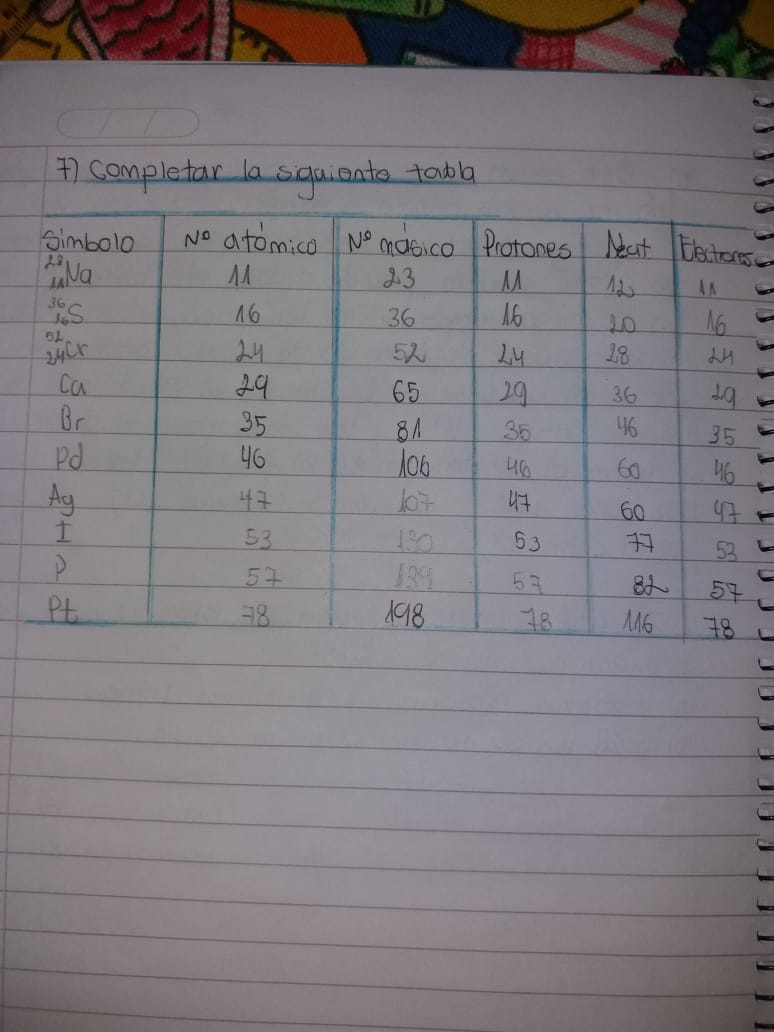 7) Completar la siguiente tabla
Símbolo Nº atómico Nº másico Protones Neut Electrones
23 11 Na 11 23 11 12 11
36 16 S 16 36 16 20 16
52 24 Cr 24 52 24 28 24
Ca 29 65 29 36 29
Br 35 81 35 46 35
Pd 46 106 46 60 46
Ag 47 107 47 60 47
I 53 130 53 77 53
P 57 139 57 82 57
Pt 78 198 78 116 78